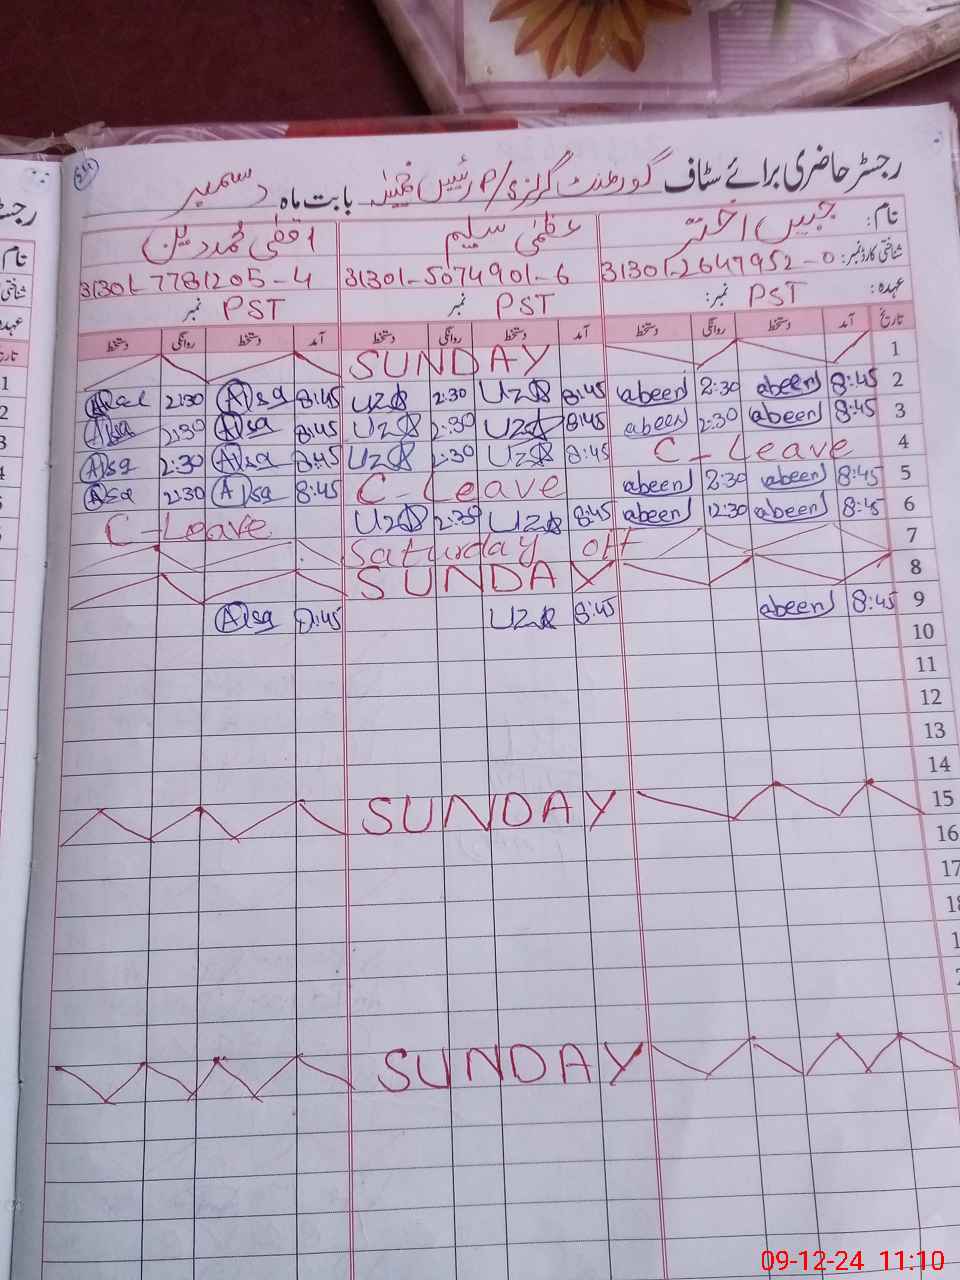 رجسٹر حاضری برائے سٹاف گورنمنٹ گرلز P/S رئیس بابت ماہ دسمبر
نام: جبیں اختر عظمٰی سلیم اقصٰی محمد دین
شناختی کارڈ نمبر: 31301-2647952-0 31301-5074901-6 31301-7781205-4
عہدہ: PST نمبر: PST نمبر PST نمبر
تاریخ آمد دستخط روانگی دستخط آمد دستخط روانگی دستخط آمد دستخط روانگی دستخط
1 SUNDAY
2 8:45 abeen 2:30 abeen 8:45 Uza 2:30 Uza 8:45 Alsa 2:30
3 8:45 abeen 2:30 abeen 8:45 Uza 2:30 Uza 8:45 Alsa 2:30 Alsa
4 C-Leave 8:45 Uza 2:30 Uza 8:45 Alsa 2:30 Alsa
5 8:45 abeen 2:30 abeen C-Leave 8:45 Alsa 2:30 Alsa
6 8:45 abeen 12:30 abeen 8:45 Uza 2:30 Uza C-Leave
7 Saturday off
8 SUNDAY
9 8:45 abeen 8:45 Uza 8:45 Alsa
10
11
12
13
14
15 SUNDAY
16
17
SUNDAY
09-12-24 11:10